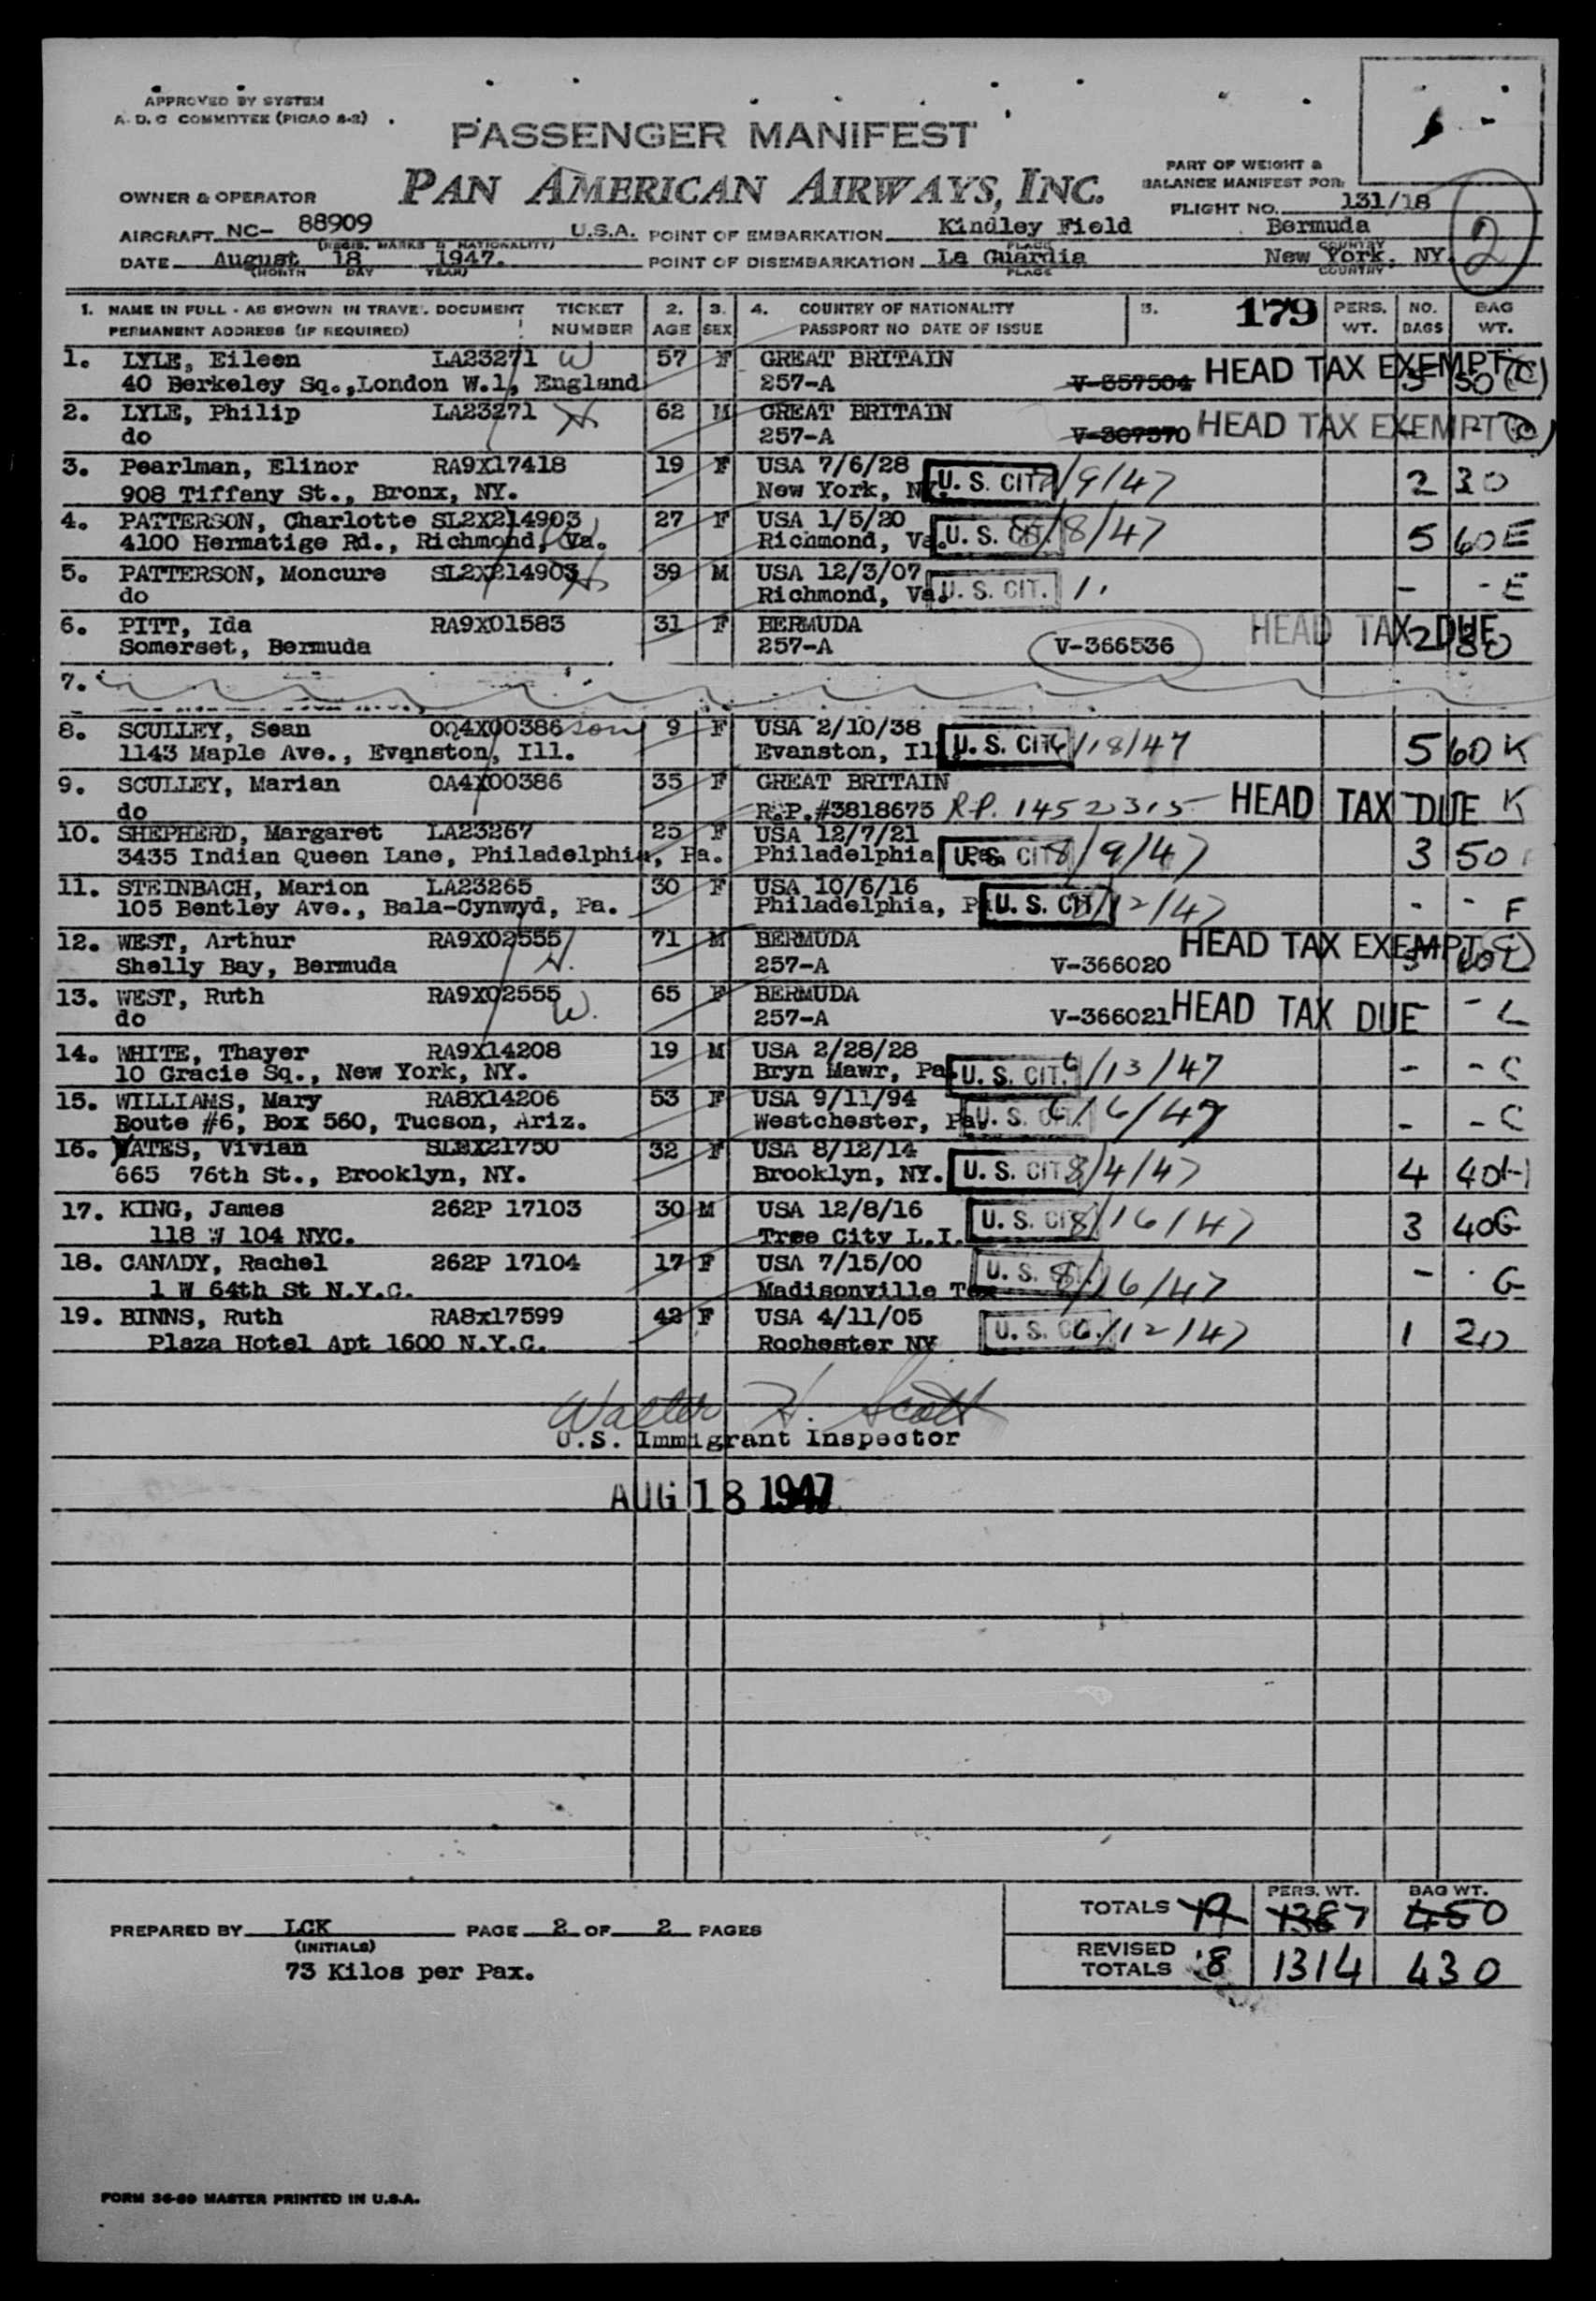 APPROVED BY SYSTEM
A. D. C COMMITTEE (PICAO 8-2)
PASSENGER MANIFEST
PAN AMERICAN AIRWAYS, INC.
PART OF WEIGHT &
BALANCE MANIFEST FOR:
OWNER & OPERATOR
FLIGHT NO. 131/18
2
AIRCRAFT NC- 88909 U.S.A. POINT OF EMBARKATION Kindley Field Bermuda
(REGIS. MARKS & NATIONALITY) PLACE COUNTRY
DATE August 18 1947. POINT OF DISEMBARKATION La Guardia New York, NY.
(MONTH DAY YEAR) PLACE COUNTRY
1. NAME IN FULL - AS SHOWN IN TRAVEL DOCUMENT TICKET 2. 3. 4. COUNTRY OF NATIONALITY 5. 179 PERS. NO. BAG
PERMANENT ADDRESS (IF REQUIRED) NUMBER AGE SEX PASSPORT NO DATE OF ISSUE WT. BAGS WT.
1. LYLE, Eileen LA23271 W 57 F GREAT BRITAIN HEAD TAX EXEMPT
40 Berkeley Sq.,London W.1, England 257-A V-357504 3 50 (C)
2. LYLE, Philip LA23271 H 62 M GREAT BRITAIN HEAD TAX EXEMPT
do 257-A V-307370 - - (C)
3. Pearlman, Elinor RA9X17418 19 F USA 7/6/28 U. S. CIT. 8/9/47
908 Tiffany St., Bronx, NY. New York, NY. 2 30
4. PATTERSON, Charlotte SL2X214903 27 F USA 1/5/20 U. S. CIT. 8/8/47
4100 Hermatige Rd., Richmond, Va. Richmond, Va. 5 60 E
5. PATTERSON, Moncure SL2X214903 H 39 M USA 12/3/07 U. S. CIT. 11
do Richmond, Va. - - E
6. PITT, Ida RA9X01583 31 F BERMUDA HEAD TAX DUE
Somerset, Bermuda 257-A V-366536 2 30
7.
8. SCULLEY, Sean OA4X00386 son 9 F USA 2/10/38 U. S. CIT. 6/18/47
1143 Maple Ave., Evanston, Ill. Evanston, Ill. 5 60 K
9. SCULLEY, Marian OA4X00386 35 F GREAT BRITAIN HEAD TAX DUE
do R.P.#3818675 R.P. 1452315 - K
10. SHEPHERD, Margaret LA23267 25 F USA 12/7/21 U. S. CIT. 8/9/47
3435 Indian Queen Lane, Philadelphia, Pa. Philadelphia Pa. 3 50
11. STEINBACH, Marion LA23265 30 F USA 10/6/16 U. S. CIT. 8/12/47
105 Bentley Ave., Bala-Cynwyd, Pa. Philadelphia, Pa. - - F
12. WEST, Arthur RA9X02555 71 M BERMUDA HEAD TAX EXEMPT
Shelly Bay, Bermuda H. 257-A V-366020 3 60 L
13. WEST, Ruth RA9X02555 65 F BERMUDA HEAD TAX DUE
do W. 257-A V-366021 - - L
14. WHITE, Thayer RA9X14208 19 M USA 2/28/28 U. S. CIT. 6/13/47
10 Gracie Sq., New York, NY. Bryn Mawr, Pa. - - C
15. WILLIAMS, Mary RA8X14206 53 F USA 9/11/94 U. S. CIT. 6/6/47
Route #6, Box 560, Tucson, Ariz. Westchester, Pa. - - C
16. YATES, Vivian SLBX21750 32 F USA 8/12/14 U. S. CIT. 8/4/47
665 76th St., Brooklyn, NY. Brooklyn, NY. 4 40 H
17. KING, James 262P 17103 30 M USA 12/8/16 U. S. CIT. 8/16/47
118 W 104 NYC. Tree City L.I. 3 40 G
18. CANADY, Rachel 262P 17104 17 F USA 7/15/00 U. S. CIT. 8/16/47
1 W 64th St N.Y.C. Madisonville Tex - - G
19. BINNS, Ruth RA8x17599 42 F USA 4/11/05 U. S. CIT. 6/12/47
Plaza Hotel Apt 1600 N.Y.C. Rochester NY 1 20
Walter H. Scott
U.S. Immigrant Inspector
AUG 18 1947
TOTALS 19 PERS. WT. 1387 BAG WT. 450
PREPARED BY LCK PAGE 2 OF 2 PAGES
(INITIALS)
REVISED TOTALS 18 1314 430
73 Kilos per Pax.
FORM 36-69 MASTER PRINTED IN U.S.A.